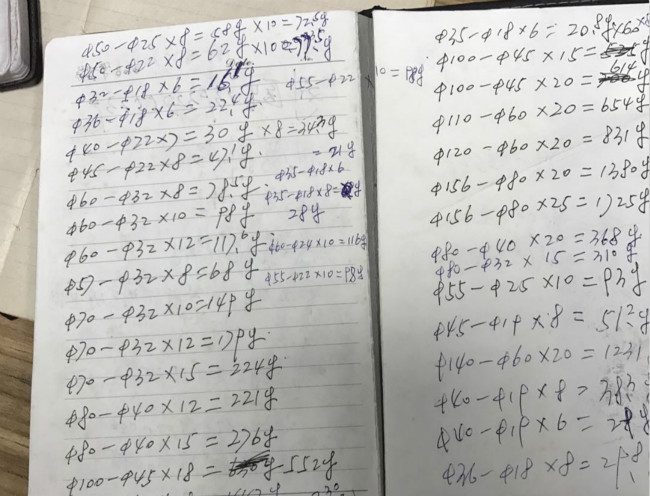 φ50-φ25×8=58g×10=72.5g
φ50-φ22×8=62g×10=77.5g
φ32-φ18×6=
φ36-φ18×6=22.4g
φ55-φ22×10=98g
φ40-φ22×7=30g×8=34.3g
φ45-φ22×8=47.1g
=21g
φ35-φ18×6
φ60-φ32×8=78.5g
φ35-φ18×8=
28g
φ60-φ32×10=98g
φ60-φ32×12=117.6g
φ60-φ24×10=116g
φ57-φ32×8=68g
φ55-φ22×10=98g
φ70-φ32×10=149g
φ70-φ32×12=179g
φ70-φ32×15=224g
φ80-φ40×12=221g
φ80-φ40×15=276g
φ100-φ45×18=552g
φ35-φ18×6=20.8g
φ100-φ45×15=
φ100-φ45×20=614
φ110-φ60×20=654g
φ120-φ60×20=831g
φ156-φ80×20=1380g
φ156-φ80×25=1725g
φ80-φ40×20=368g
φ80-φ32×15=310g
φ55-φ25×10=93g
φ45-φ19×8=51.2g
φ140-φ60×20=1231
φ40-φ19×8=38.3
φ40-φ19×6=
φ36-φ18×8=29.8